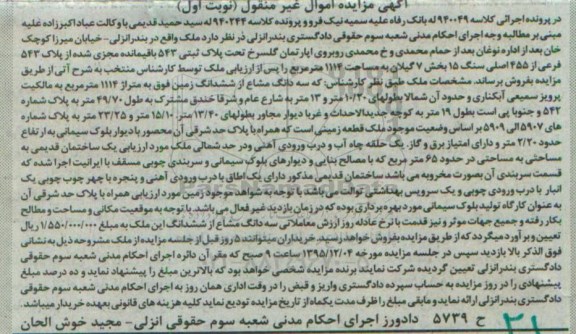 آگهی مزایده اموال غیر منقول (نوبت اول)
در پرونده اجرائی کلاسه ۹۴۰۰۴۹ له بانک رفاه علیه سمیه نیک فر و پرونده کلاسه ۹۴۰۲۴۴ له سید حمید قدیمی با وکالت عباد اکبرزاده علیه
مبنی بر مطالبه وجه اجرای احکام مدنی شعبه سوم حقوقی دادگستری بندرانزلی در نظر دارد ملک واقع در بندرانزلی- خیابان میرزا کوچک
خان بعد از اداره نوغان بعد از حمام محمدی و خ محمدی روبروی اپارتمان گلسرخ تحت پلاک ثبتی ۵۴۳ باقیمانده مجزی شده از پلاک ۵۴۳
فرعی از ۴۵۵ اصلی سنگ ۱۵ بخش ۷ گیلان به مساحت ۱۱۱۴ مترمربع را پس از ارزیابی ملک توسط کارشناس منتخب به شرح آتی از طریق
مزایده بفروش برساند. مشخصات ملک طبق نظر کارشناس: که سه دانگ مشاع از ششدانگ زمین فوق به متراژ ۱۱۱۴ مترمربع به مالکیت
پرویز سمیعی آبکناری و حدود آن شمالا بطولهای ۱۰/۲۰ متر و ۱۳ متر به شارع عام و شرقا خندق مشترک به طول ۴۹/۷۰ متر به پلاک شماره
۵۴۲ و جنوبا پی است بطول ۱۹ متر به کوچه جدیدالاحداث و غربا دیوار مجاور بطولهای ۱۳/۴۰ متر، ۱۵/۱۰ متر و ۲۳/۲۵ متر به پلاک شماره
های ۵۹۰۷ الی ۵۹۰۹ بر اساس وضعیت موجود ملک قطعه زمینی است که همراه با پلاک حد شرقی آن محصور با دیوار بلوک سیمانی به ارتفاع
حدود ۲/۲۰ متر و دارای امتیاز برق و گاز، یک حلقه چاه آب و درب ورودی آهنی و در حد شمالی ملک مورد ارزیابی یک ساختمان قدیمی به
مساحتی به مساحتی در حدود ۶۵ متر مربع که با مصالح بنایی و دیوارهای بلوک سیمانی و سربندی چوبی مسقف با ایرانیت اجرا شده که
قسمت سربندی آن بصورت مخروبه می باشد ساختمان قدیمی مذکور دارای یک اطاق با درب ورودی آهنی و پنجره با چهر چوب چوبی یک
انبار با درب ورودی چوبی و یک سرویس بهداشتی توالت می باشد با توجه به شواهد موجود زمین مورد ارزیابی همراه با پلاک حد شرقی آن
به عنوان کارگاه تولید بلوک سیمانی مورد بهره برداری بوده که در زمان بازدید غیر فعال می باشد. با توجه به موقعیت مکانی و مساحت و مصالح
بکار رفته و جمیع جهات موثر و نیز قدمت با نرخ عادله روز ارزش معاملاتی سه دانگ مشاع از ششدانگ این ملک به مبلغ ۱/۵۵۰/۰۰۰/۰۰۰ ریال
تعیین و برآورد میگردد که از طریق مزایده بفروش خواهد رسید. خریداران میتوانند ۵ روز قبل از جلسه مزایده از ملک مشروحه ذیل به نشانی
فوق الذکر بالا بازدید سپس در جلسه مزایده مورخه ۱۳۹۵/۱۲/۰۴ ساعت ۹ صبح که مقر آن دائره اجرای احکام مدنی شعبه سوم حقوقی
دادگستری بندرانزلی تعیین گردیده شرکت نمایند برنده مزایده شخصی خواهد بود که بالاترین مبلغ را پیشنهاد نماید و ده درصد مبلغ
پیشنهادی را در روز مزایده به حساب سپرده دادگستری واریز و قبض را در وقت اداری همان روز به اجرای احکام مدنی شعبه سوم حقوقی
دادگستری بندرانزلی ارائه نماید و مابقی مبلغ را ظرف مدت یکماه از تاریخ مزایده تودیع نماید کلیه هزینه های قانونی بعهده خریدار میباشد.
ح ۵۷۳۹ دادورز اجرای احکام مدنی شعبه سوم حقوقی انزلی - مجید خوش الحان